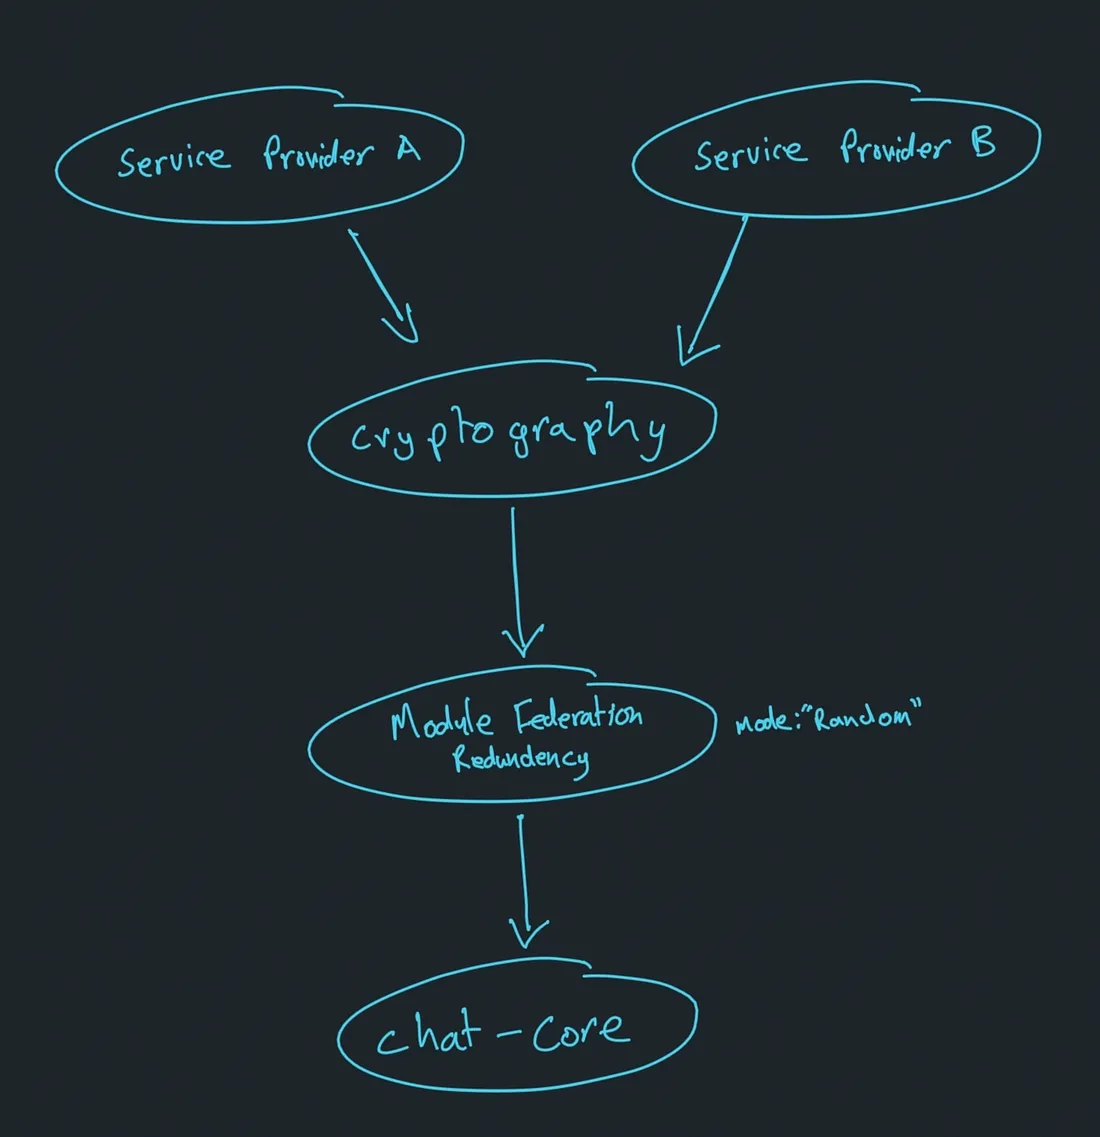 Service Provider A
Service Provider B
Cryptography
Module Federation
Redundency
mode:"Random"
chat-core